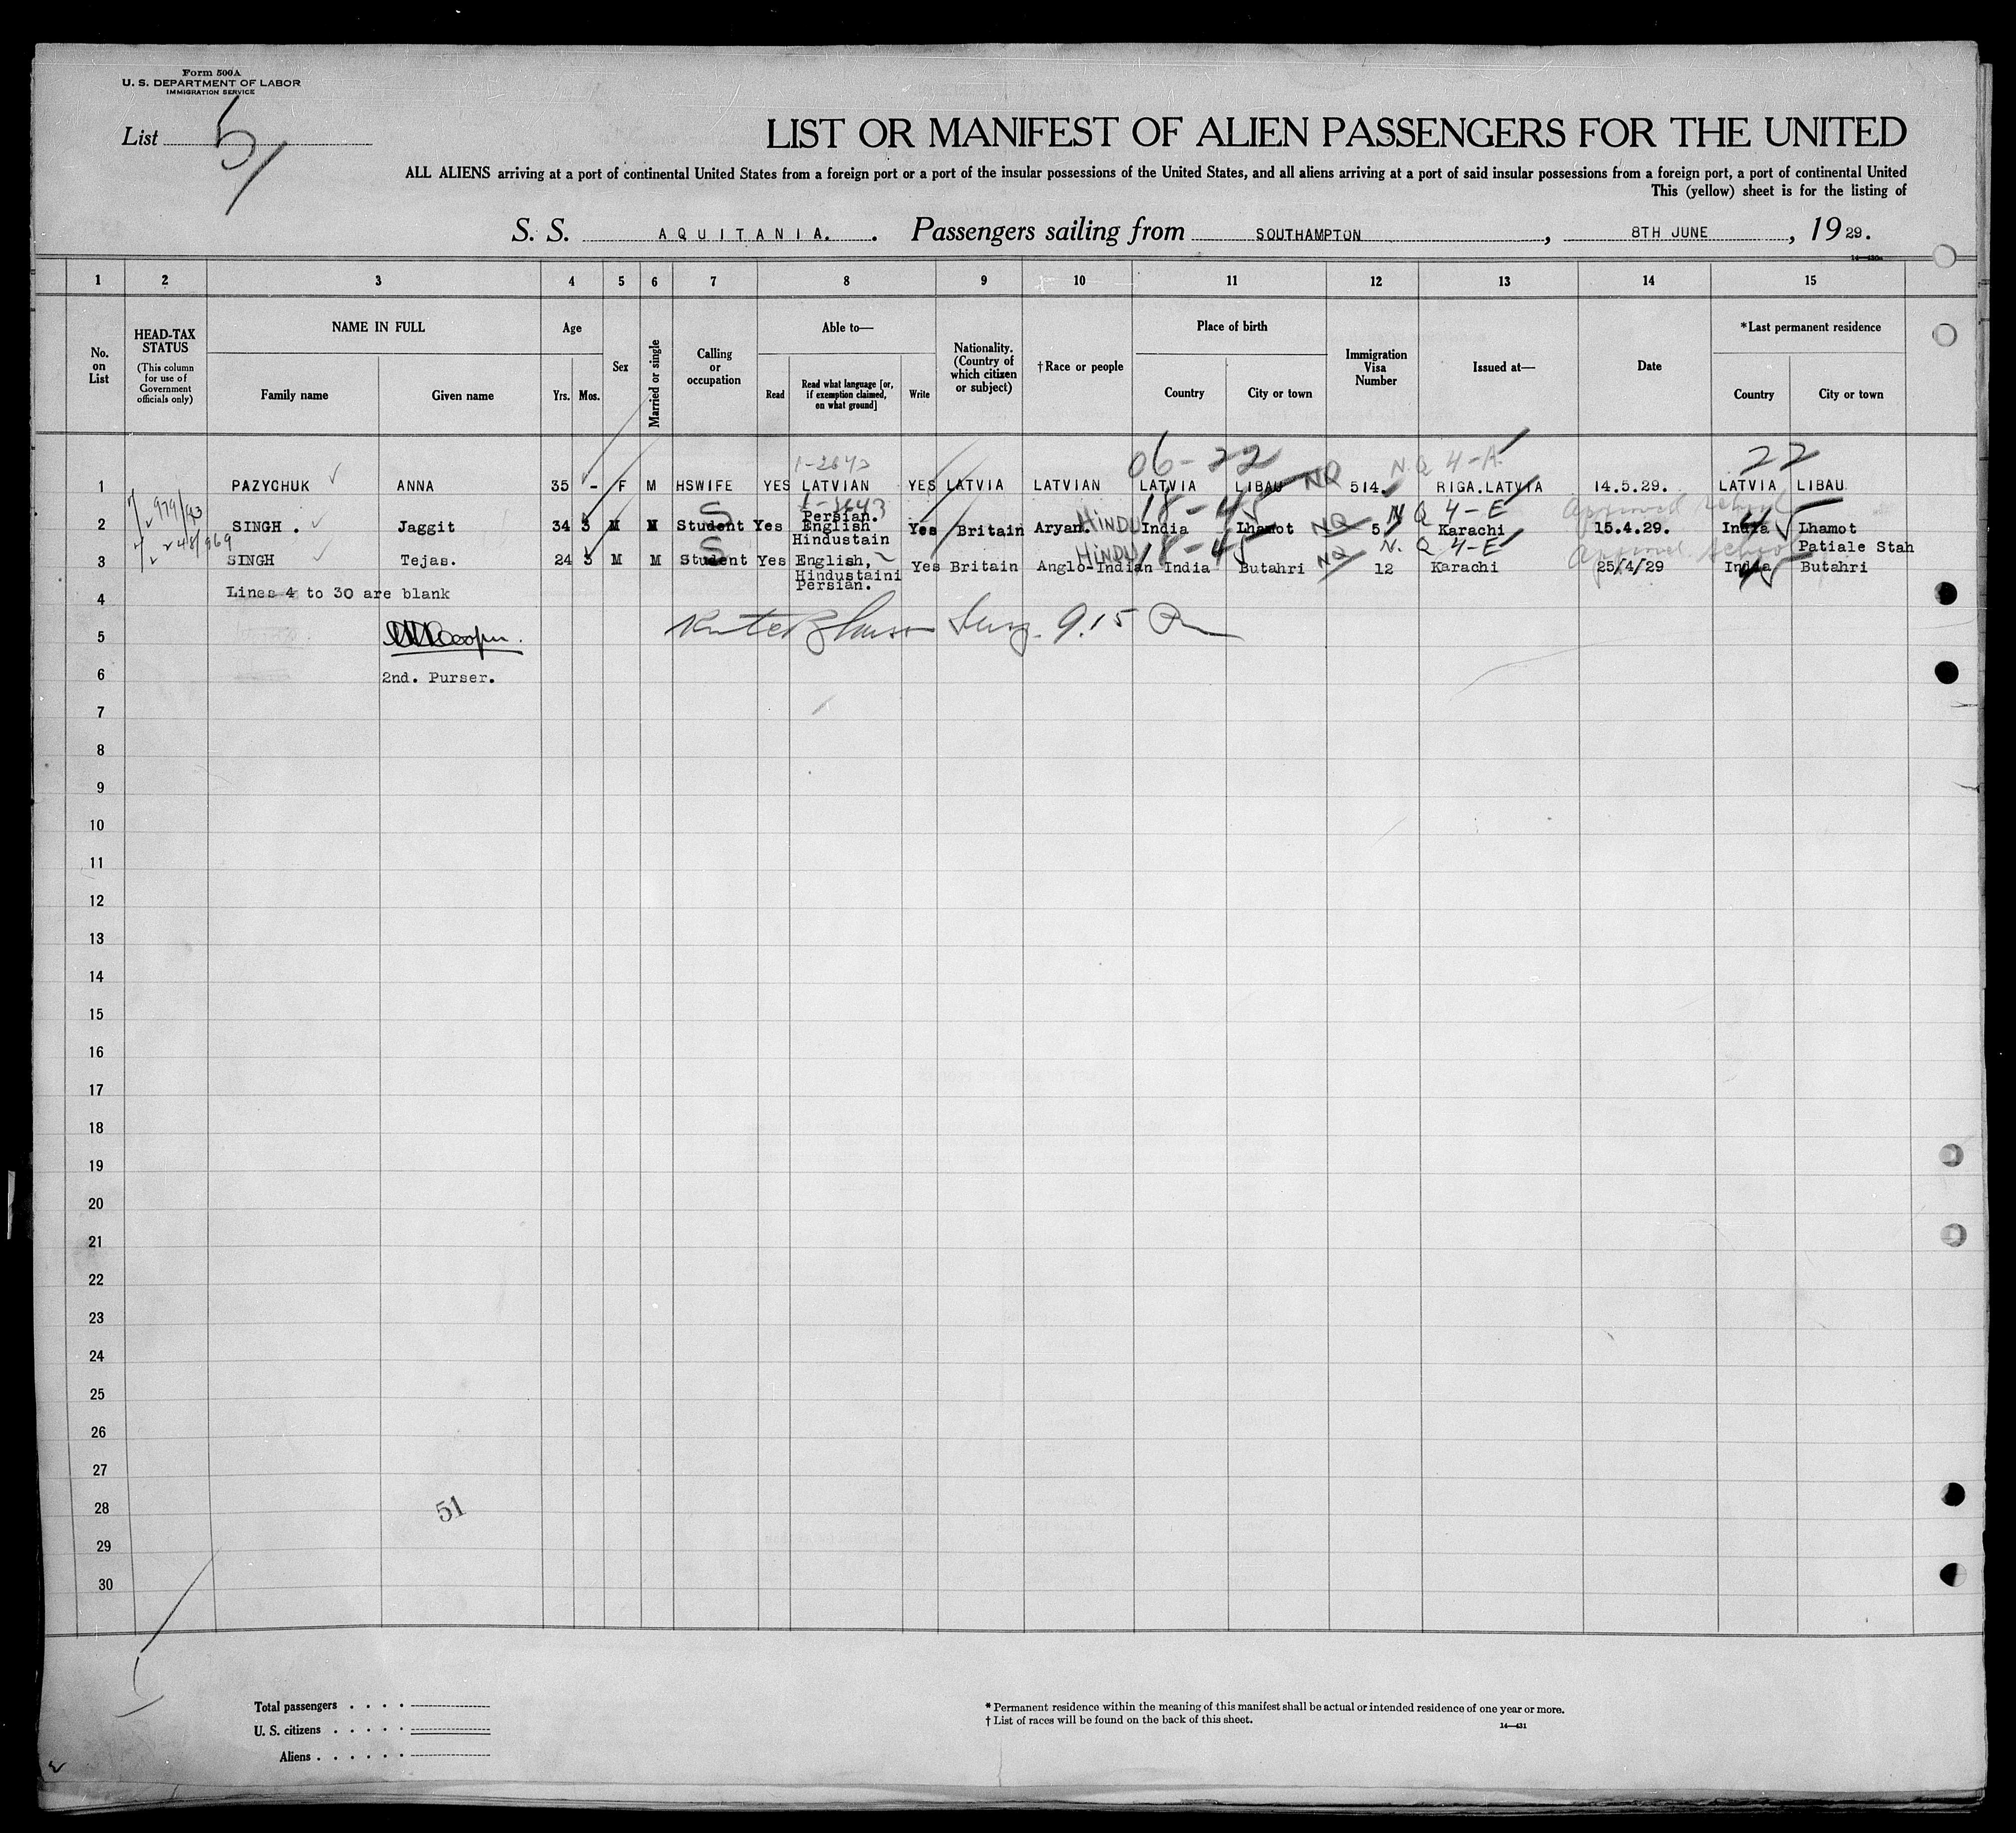 Form 500A
U. S. DEPARTMENT OF LABOR
IMMIGRATION SERVICE
List 5
LIST OR MANIFEST OF ALIEN PASSENGERS FOR THE UNITED
ALL ALIENS arriving at a port of continental United States from a foreign port or a port of the insular possessions of the United States, and all aliens arriving at a port of said insular possessions from a foreign port, a port of continental United
This (yellow) sheet is for the listing of
S. S. AQUITANIA. . Passengers sailing from SOUTHAMPTON , 8TH JUNE , 1929.
1 2 3 4 5 6 7 8 9 10 11 12 13 14 15
No. on List
HEAD-TAX STATUS
(This column for use of Government officials only)
NAME IN FULL
Family name Given name
Age
Yrs. Mos.
Sex
Married or single
Calling or occupation
Able to—
Read
Read what language [or, if exemption claimed, on what ground]
Write
Nationality. (Country of which citizen or subject)
†Race or people
Place of birth
Country City or town
Immigration Visa Number
Issued at—
Date
*Last permanent residence
Country City or town
1-2643 06-22 N.Q 4-A 22
1 PAZYCHUK ANNA 35 - F M HSWIFE YES LATVIAN YES LATVIA LATVIAN LATVIA LIBAU NQ 514. RIGA.LATVIA 14.5.29. LATVIA LIBAU
979/93 1-2643 18-45 N Q 4-E Approved School
2 SINGH . Jaggit 34 3 M M Student Yes Persian. English Hindustain Yes Britain Aryan. HINDU India Lhamot NQ 5 Karachi 15.4.29. India Lhamot Patiale Stah
248/969 S 18-45 N. Q 4-E Approved School
3 SINGH Tejas. 24 3 M M Student Yes English, Hindustaini Persian. Yes Britain HINDU Anglo-Indian India Butahri NQ 12 Karachi 25/4/29 India Butahri
4 Lines 4 to 30 are blank
5 9.15
6 2nd. Purser.
7
8
9
10
11
12
13
14
15
16
17
18
19
20
21
22
23
24
25
26
27
28 51
29
30
Total passengers . . . .
U. S. citizens . . . . .
Aliens . . . . . .
* Permanent residence within the meaning of this manifest shall be actual or intended residence of one year or more.
† List of races will be found on the back of this sheet.
14—431